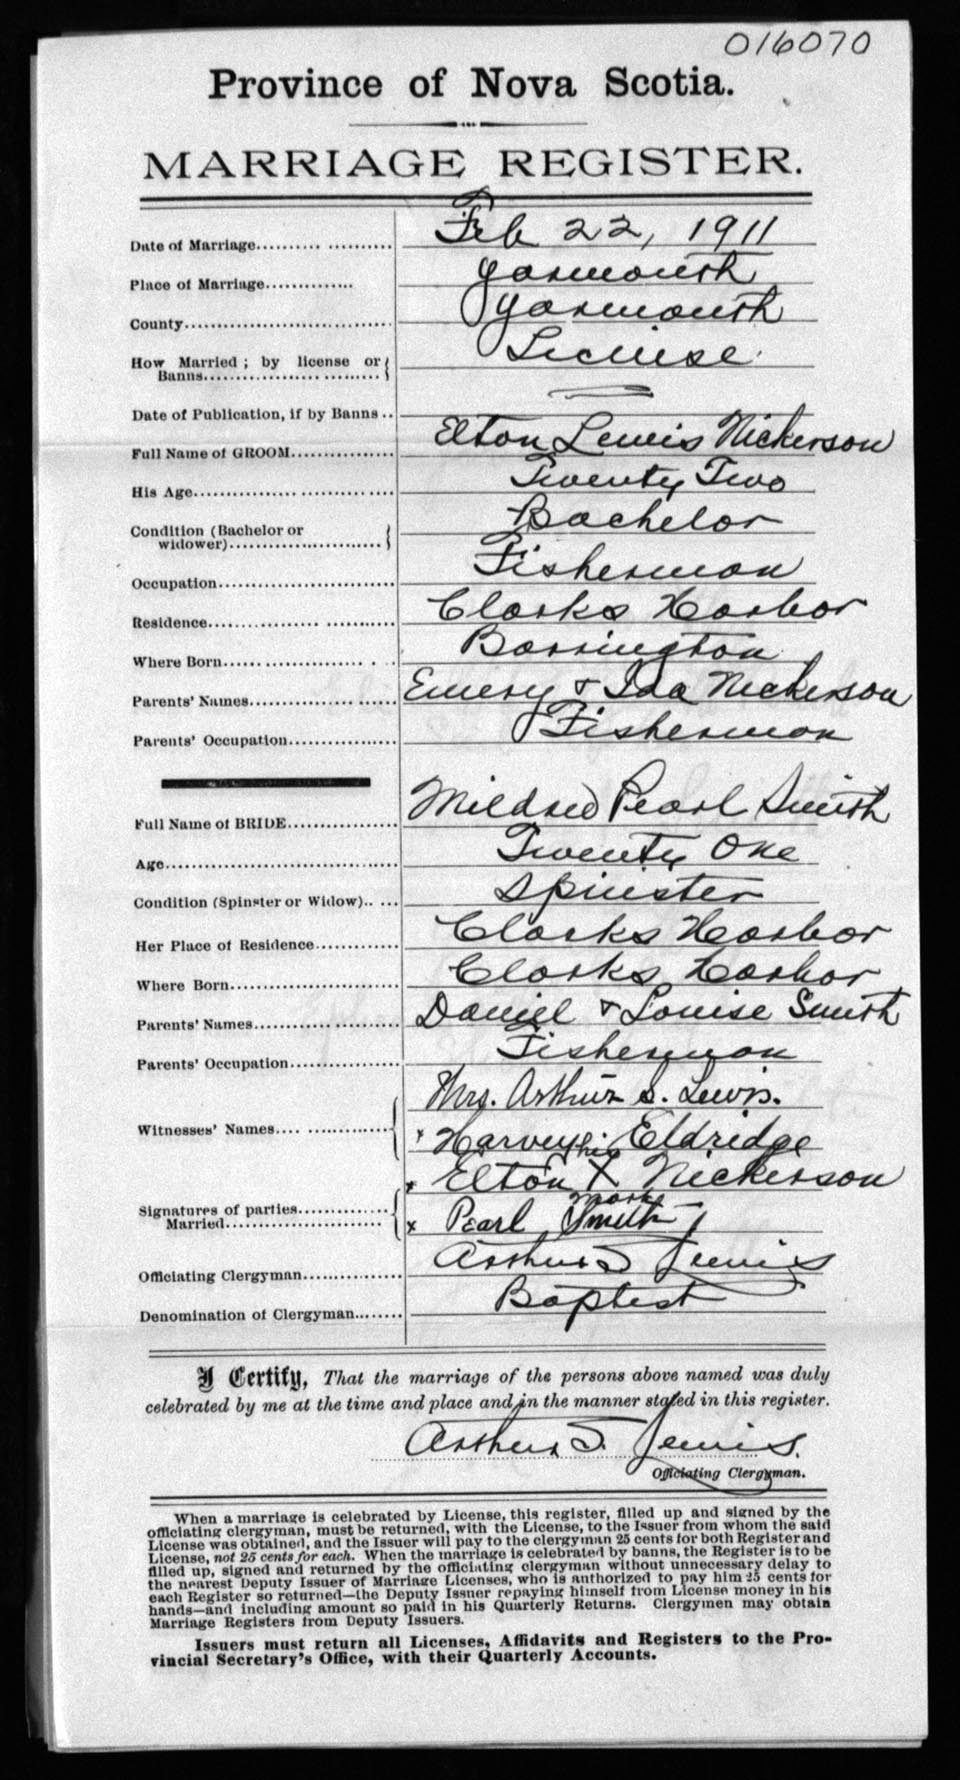 016070
Province of Nova Scotia.
MARRIAGE REGISTER.
Date of Marriage.......... .......... Feb 22, 1911
Place of Marriage.............. Yarmouth
County................................ Yarmouth
How Married ; by license or Banns.................. ......... License
Date of Publication, if by Banns ..
Full Name of GROOM................ Elton Lewis Nickerson
His Age.................... ............... Twenty Two
Condition (Bachelor or widower)............................ Bachelor
Occupation........................... Fisherman
Residence................ ........... Clarks Harbor
Where Born...... ............... . . Barrington
Parents' Names................ ...... Emery & Ida Nickerson
Parents' Occupation................. Fisherman
Full Name of BRIDE................. Mildred Pearl Smith
Age.................................... Twenty One
Condition (Spinster or Widow).. ... Spinster
Her Place of Residence............. Clarks Harbor
Where Born.......................... Clarks Harbor
Parents' Names............. ......... Daniel & Louise Smith
Parents' Occupation................. Fisherman
Mrs. Arthur S. Lewis.
Witnesses' Names.... ............. x Harvey Eldridge
his
x Elton X Nickerson
mark
Signatures of parties.............. Married........................ x Pearl Smith
Officiating Clergyman............... Arthur S Lewis
Denomination of Clergyman........ Baptist
I Certify, That the marriage of the persons above named was duly
celebrated by me at the time and place and in the manner stated in this register.
Arthur S. Lewis.
Officiating Clergyman.
When a marriage is celebrated by License, this register, filled up and signed by the
officiating clergyman, must be returned, with the License, to the Issuer from whom the said
License was obtained, and the Issuer will pay to the clergyman 25 cents for both Register and
License, not 25 cents for each. When the marriage is celebrated by banns, the Register is to be
filled up, signed and returned by the officiating clergyman without unnecessary delay to
the nearest Deputy Issuer of Marriage Licenses, who is authorized to pay him 25 cents for
each Register so returned—the Deputy Issuer repaying himself from License money in his
hands—and including amount so paid in his Quarterly Returns. Clergymen may obtain
Marriage Registers from Deputy Issuers.
Issuers must return all Licenses, Affidavits and Registers to the Pro-
vincial Secretary's Office, with their Quarterly Accounts.